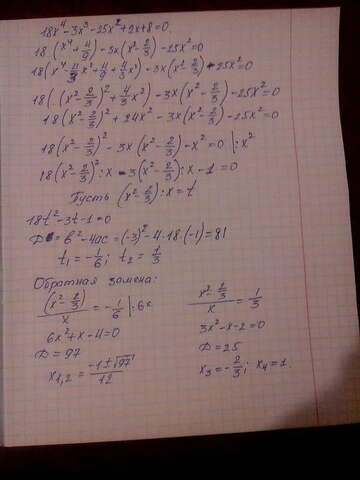 18x⁴-3x³-25x²+2x+8=0.
18(x⁴+4/9)-3x(x²-2/3)-25x²=0
18(x⁴-4/3x²+4/9+4/3x²)-3x(x²-2/3)-25x²=0
18((x²-2/3)²+4/3x²)-3x(x²-2/3)-25x²=0
18(x²-2/3)²+24x²-3x(x²-2/3)-25x²=0
18(x²-2/3)²-3x(x²-2/3)-x²=0 |:x²
18(x²-2/3)²:x-3(x²-2/3):x-1=0
Пусть (x²-2/3):x=t
18t²-3t-1=0
D=b²-4ac=(-3)²-4·18·(-1)=81
t₁=-1/6; t₂=1/3
Обратная замена:
(x²-2/3)/x=-1/6 |·6x
6x²+x-4=0
D=97
x₁,₂=(-1±√97)/12
(x²-2/3)/x=1/3
3x²-x-2=0
D=25
x₃=-2/3; x₄=1.